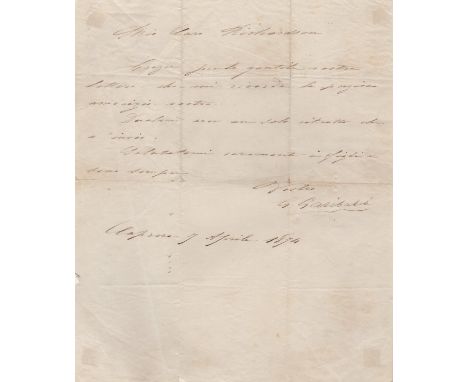 Mio Caro Richardson
Grazie per la gentile vostra
lettera che mi ricorda la preziosa
amicizia vostra.
Duolmi aver un solo ritratto che
v'invio.
Salutatemi caramente i figli e
sono sempre
Vostro
G Garibaldi
Caprera 7 Aprile 1874